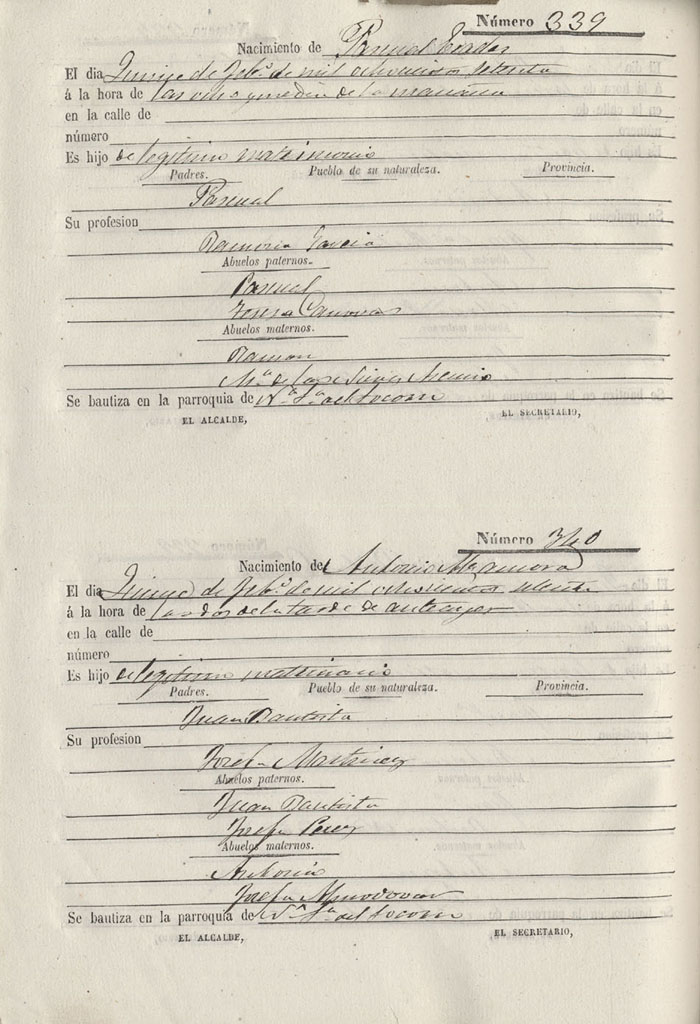 Número 339
Nacimiento de Pascual
El dia Quince de Feb.º de mil ochocientos setenta
á la hora de las ocho y media de la mañana
en la calle de
número
Es hijo de legitimo matrimonio
Padres. Pueblo de su naturaleza. Provincia.
Pascual
Su profesion
Ramona Garcia
Abuelos paternos.
Pascual
Teresa Canovas
Abuelos maternos.
Ramon
M.ª de
Se bautiza en la parroquia de N.ª S.ª del Socorro
EL ALCALDE, EL SECRETARIO,
Número 340
Nacimiento de Antonio
El dia Quince de Feb.º de mil ochocientos setenta
á la hora de las dos de la tarde de anteayer
en la calle de
número
Es hijo de legitimo matrimonio
Padres. Pueblo de su naturaleza. Provincia.
Juan Bautista
Su profesion
Josefa Martinez
Abuelos paternos.
Juan Bautista
Josefa Perez
Abuelos maternos.
Antonio
Josefa Almodovar
Se bautiza en la parroquia de N.ª S.ª del Socorro
EL ALCALDE, EL SECRETARIO,